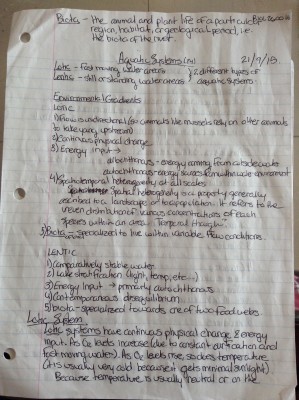 Biota - the animal and plant life of a particular
region, habitat, or geological period, i.e.
the biota of the river.
Aquatic Systems 21/9/15.
Lotic - fast moving water areas } 2 different types of
Lentic - still or standing water areas } aquatic systems.
Environmental Gradients
LOTIC
1) Flow is unidirectional (so animals like mussels rely on other animals
to take young upstream)
2) Continuous physical change
3) Energy Input →
allochthonous - energy coming from outside water
autochthonous - energy comes from within water environment
4) Spatiotemporal heterogeneity at all scales
Spatial heterogeneity is a property generally
ascribed to a landscape or to a population. It refers to the
uneven distribution of various concentrations of each
species within an area. Temporal
5) Biota - specialised to live within variable flow conditions.
LENTIC
1) comparatively stable water
2) Lake stratification (light, temp, etc...)
3) Energy Input → primarily autochthonous
4) Contemporaneous disequilibrium
5) biota - specialised towards one of two food webs.
Lotic System
Lotic systems have continuous physical change & energy
input. As O₂ levels increase (due to constant and
fast moving water). As O₂ levels rise, so does temperature
(it is usually very cold because it gets minimal sunlight)
Because temperature is usually neutral or on the